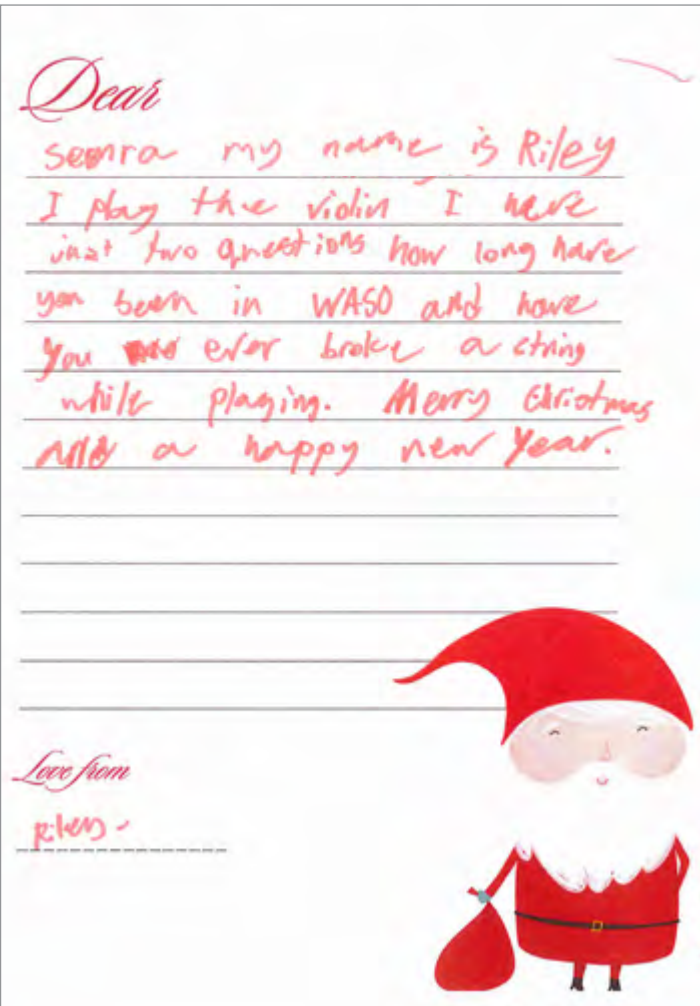 Dear
Semra my name is Riley
I play the violin I have
just two questions how long have
you been in WASO and have
you ever broke a string
while playing. Merry Christmas
and a happy new Year.
Love from
Riley